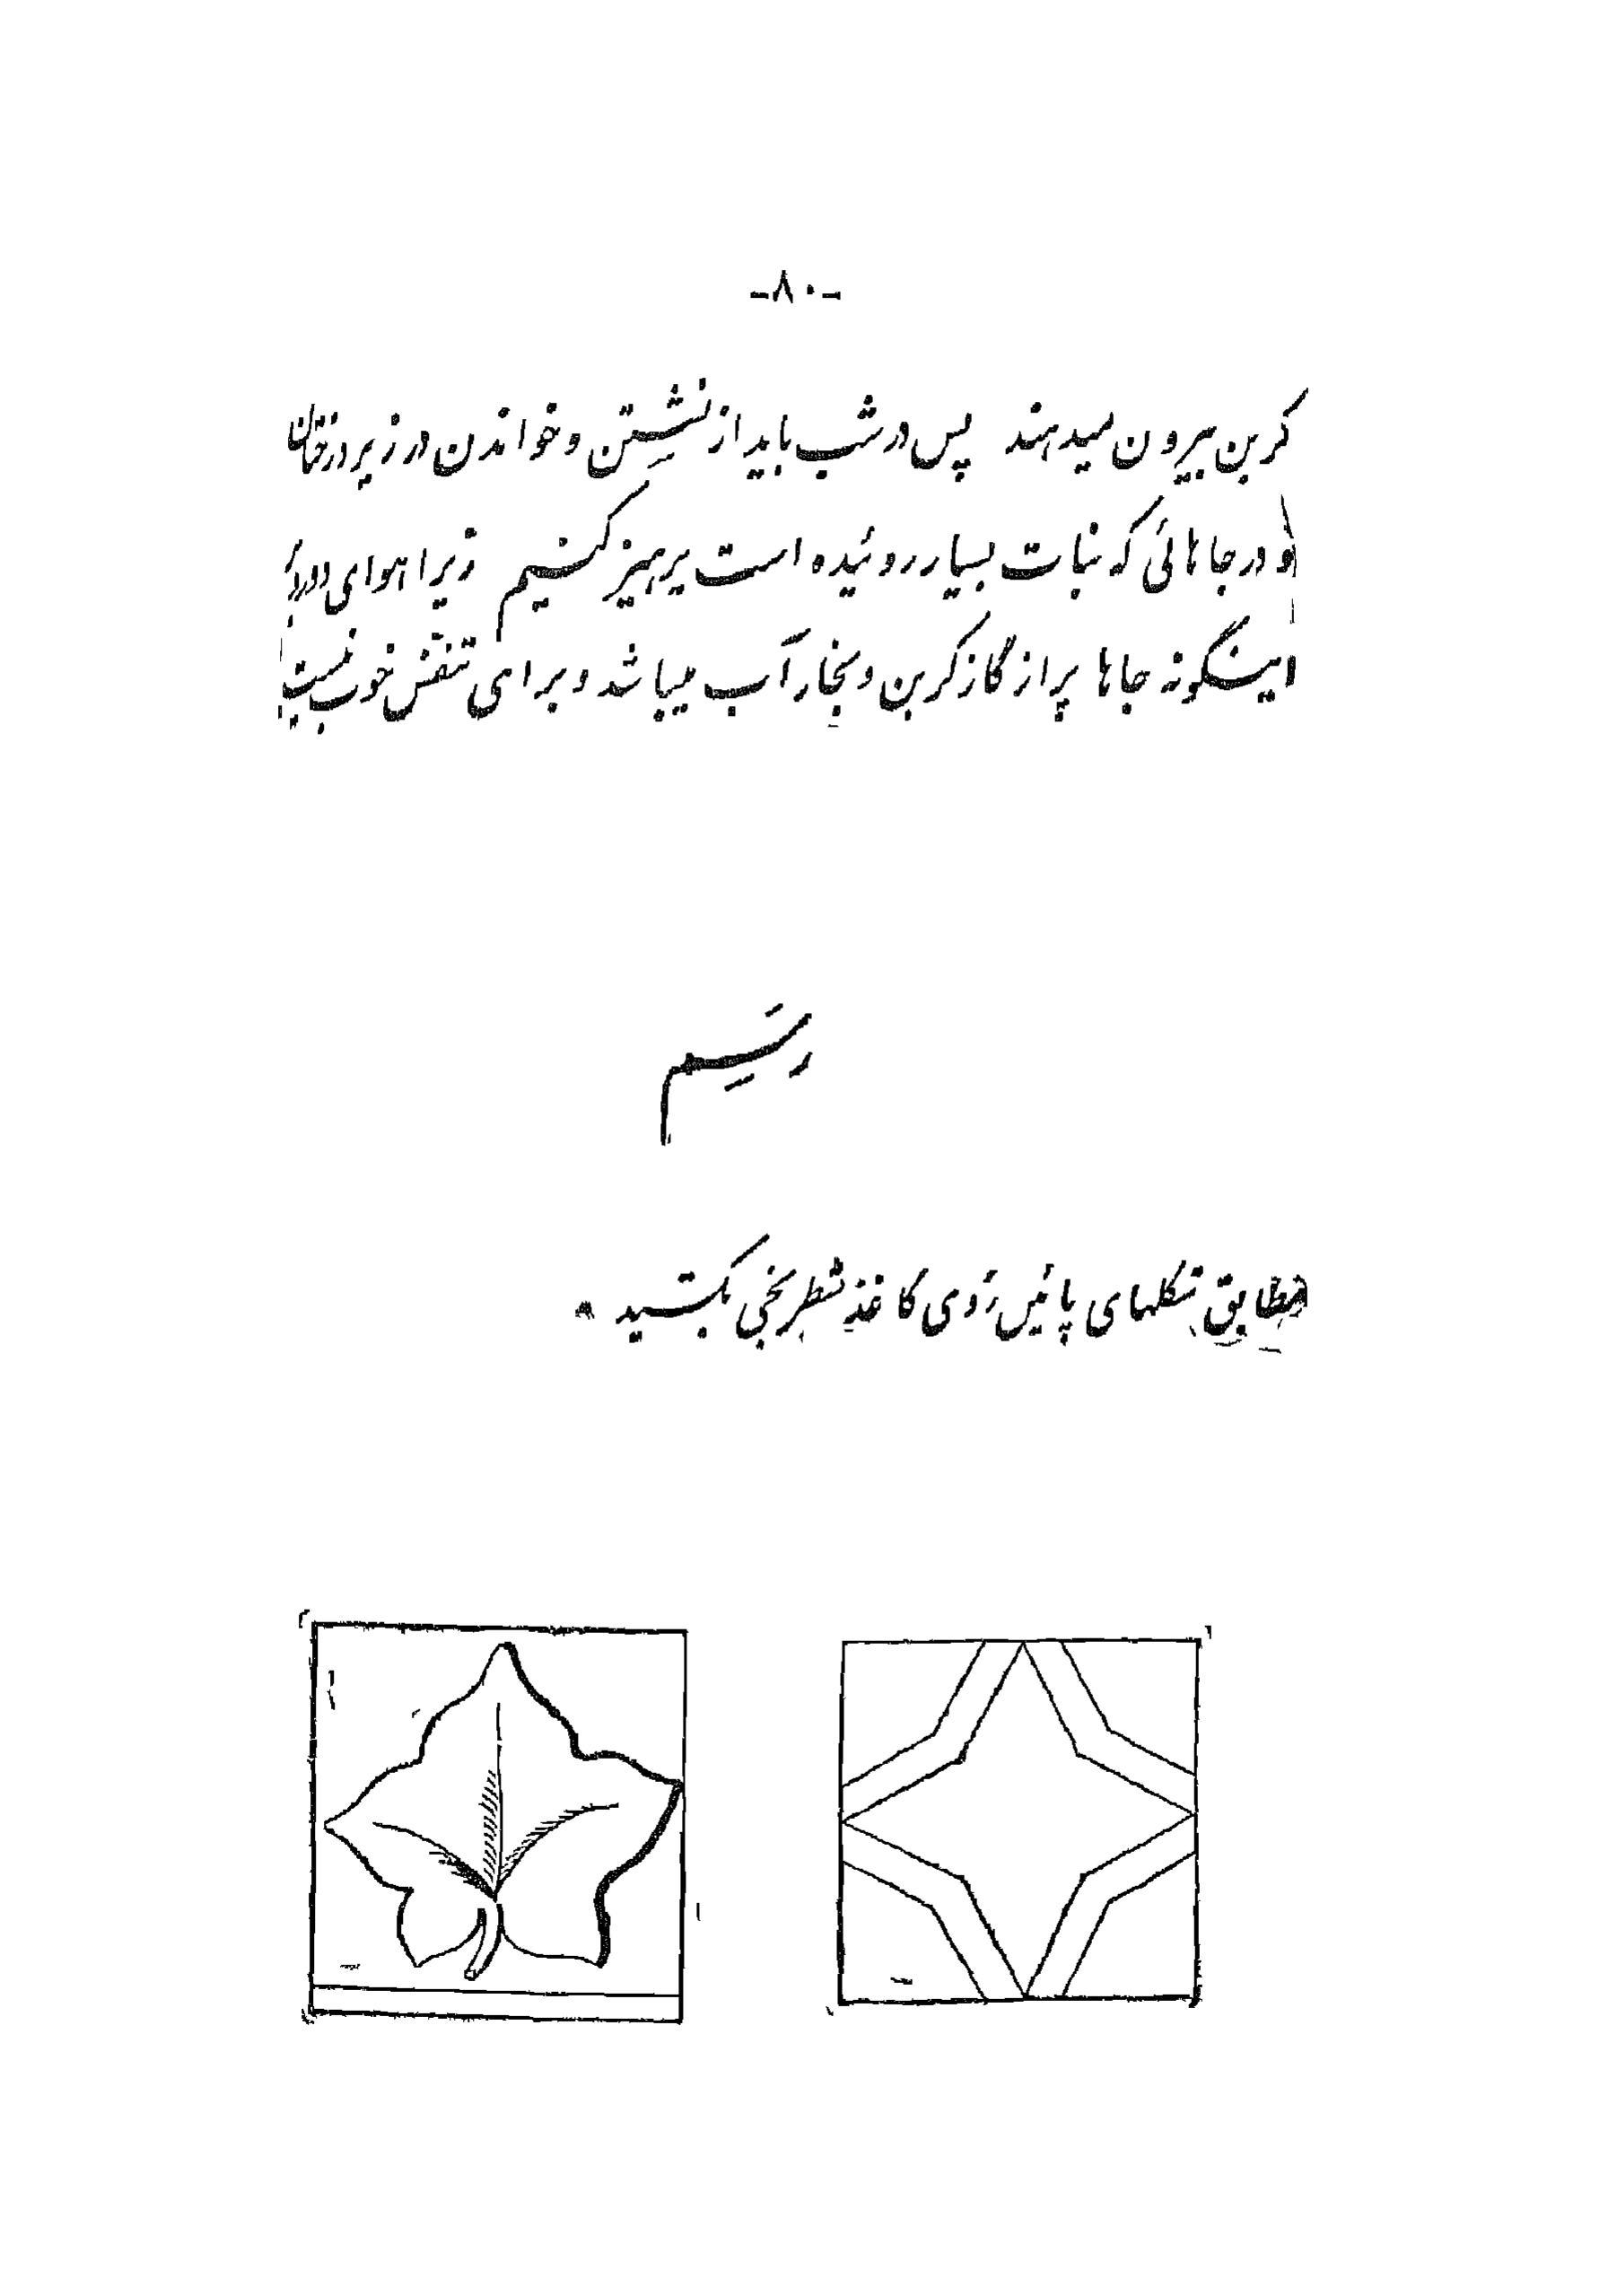 -۸۰-
کربن بیرون میدهند پس در شب باید از نشستن و خواندن در زیر درختان
و در جاهائی که نبات بسیار روئیده است پرهیز کنیم زیرا هوای دور
اینگونه جاها پر از گاز کربن و بخار آب میباشد و برای تنفس خوب نیست
رسم
مطابق شکلهای پائین روی کاغذ شطرنجی بکشید .